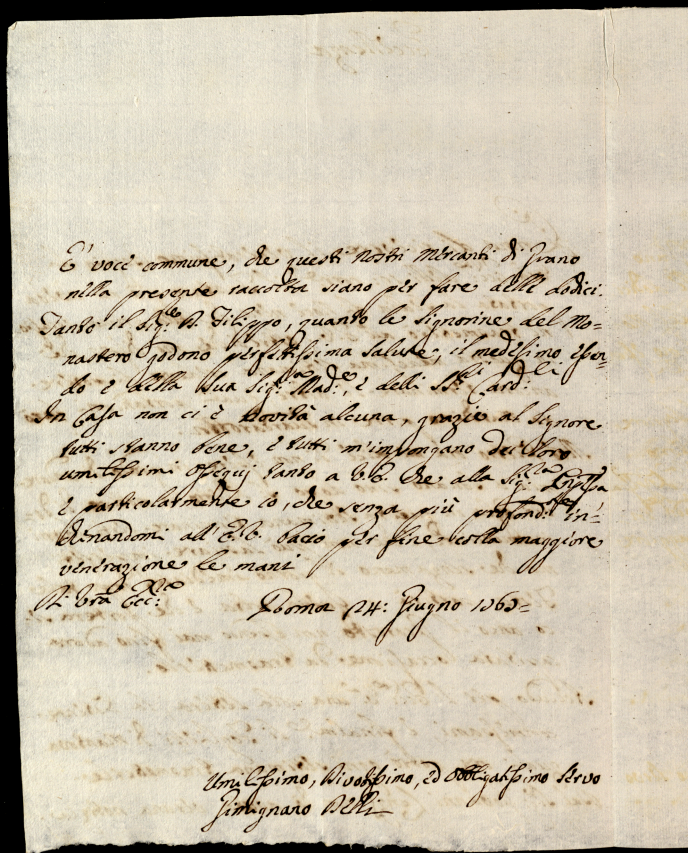 E' voce commune, che questi nostri Mercanti di Grano
nella presente raccolta siano per fare delle dodici.
Tanto il Sig.re D. Filippo, quanto le Signorine del Mo=
nastero godono perfettissima salute, il medesimo essen-
do è della Sua Sig.ra Mad.e, e delli SS.ri Card.li
In Casa non ci è novità alcuna, grazie al Signore
tutti stanno bene, e tutti m'impongano dei loro
umilissimi ossequij tanto a V.E. che alla Sig.ra
e particolarmente io, che senza più profond.te in=
chinandomi all'E.V. bacio per fine colla maggiore
venerazione le mani
Di Vra Ecc.za
Roma 24: Giugno
Umilissimo, Divotissimo, ed Obbligatissimo Servo
Gimignano Belli